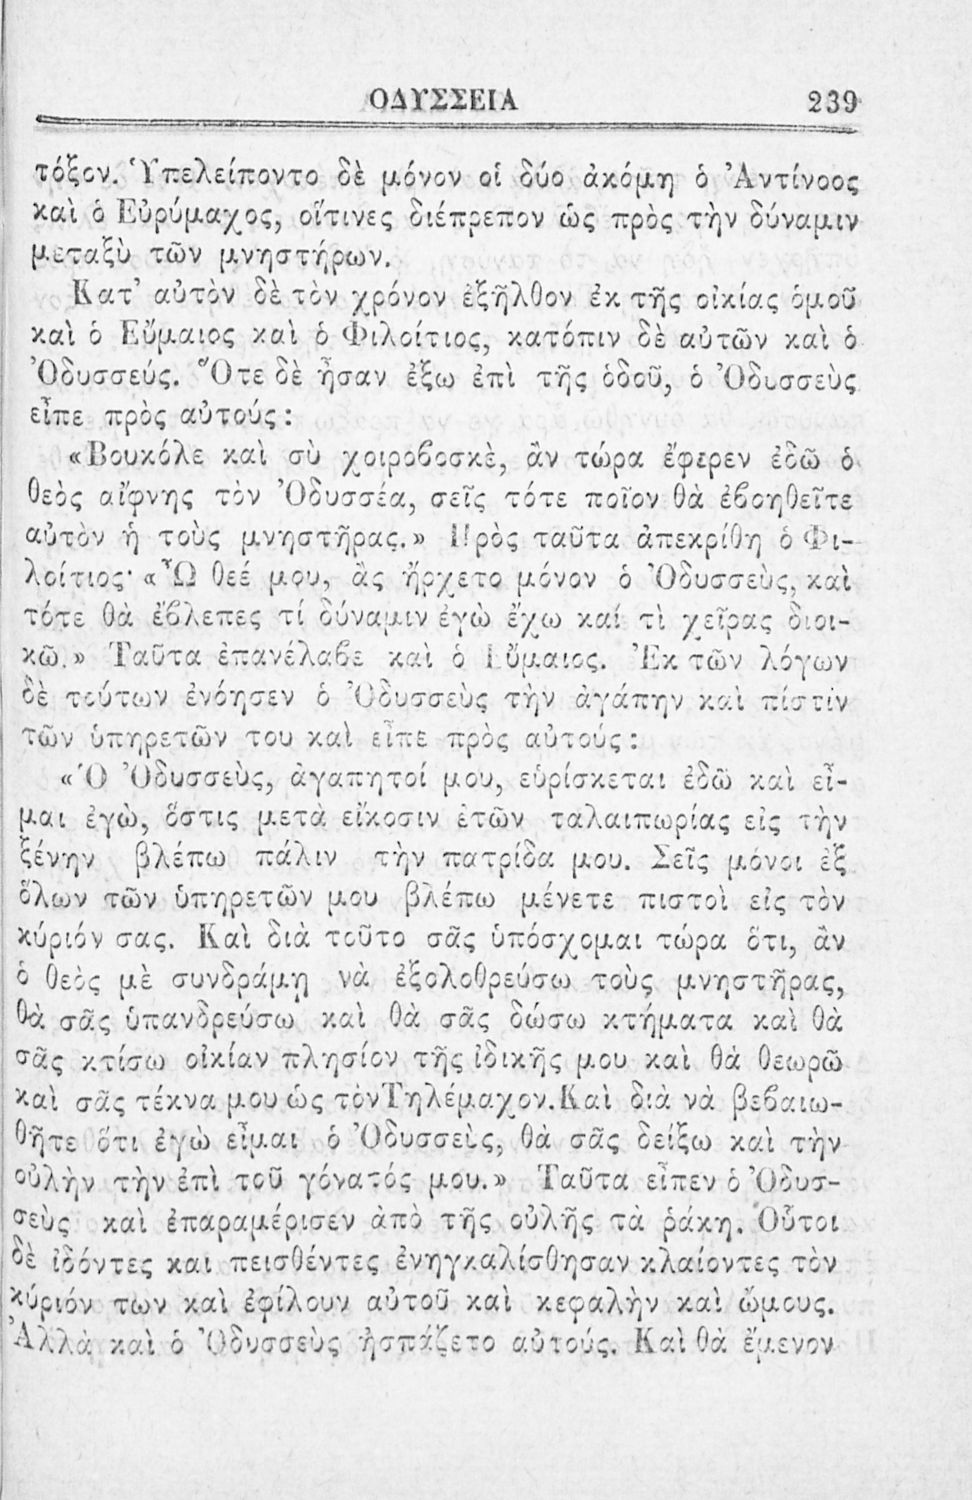 ΟΔΥΣΣΕΙΑ 239
τόξον. Ὑπελείποντο δὲ μόνον οἱ δύο ἀκόμη ὁ Ἀντίνοος
καὶ ὁ Εὐρύμαχος, οἵτινες διέπρεπον ὡς πρὸς τὴν δύναμιν
μεταξὺ τῶν μνηστήρων.
Κατ’ αὐτὸν δὲ τὸν χρόνον ἐξῆλθον ἐκ τῆς οἰκίας ὁμοῦ
καὶ ὁ Εὔμαιος καὶ ὁ Φιλοίτιος, κατόπιν δὲ αὐτῶν καὶ ὁ
Ὀδυσσεύς. Ὅτε δὲ ἦσαν ἔξω ἐπὶ τῆς ὁδοῦ, ὁ Ὀδυσσεὺς
εἶπε πρὸς αὐτούς :
«Βουκόλε καὶ σὺ χοιροβοσκὲ, ἂν τώρα ἔφερεν ἐδῶ ὁ
θεὸς αἴφνης τὸν Ὀδυσσέα, σεῖς τότε ποῖον θὰ ἐβοηθεῖτε
αὐτὸν ἢ τοὺς μνηστῆρας.» Πρὸς ταῦτα ἀπεκρίθη ὁ Φι-
λοίτιος· «Ὦ θεέ μου, ἂς ἤρχετο μόνον ὁ Ὀδυσσεὺς, καὶ
τότε θὰ ἔβλεπες τί δύναμιν ἐγὼ ἔχω καί τὶ χεῖρας διοι-
κῶ.» Ταῦτα ἐπανέλαβε καὶ ὁ Εὔμαιος. Ἐκ τῶν λόγων
δὲ τούτων ἐνόησεν ὁ Ὀδυσσεὺς τὴν ἀγάπην καὶ πίστιν
τῶν ὑπηρετῶν του καὶ εἶπε πρὸς αὐτούς :
«Ὁ Ὀδυσσεὺς, ἀγαπητοί μου, εὑρίσκεται ἐδῶ καὶ εἶ-
μαι ἐγὼ, ὅστις μετὰ εἴκοσιν ἐτῶν ταλαιπωρίας εἰς τὴν
ξένην βλέπω πάλιν τὴν πατρίδα μου. Σεῖς μόνοι ἐξ
ὅλων τῶν ὑπηρετῶν μου βλέπω μένετε πιστοὶ εἰς τὸν
κύριόν σας. Καὶ διὰ τοῦτο σᾶς ὑπόσχομαι τώρα ὅτι, ἂν
ὁ θεὸς μὲ συνδράμῃ νὰ ἐξολοθρεύσω τοὺς μνηστῆρας,
θὰ σᾶς ὑπανδρεύσω καὶ θὰ σᾶς δώσω κτήματα καὶ θὰ
σᾶς κτίσω οἰκίαν πλησίον τῆς ἰδικῆς μου καὶ θὰ θεωρῶ
καὶ σᾶς τέκνα μου ὡς τὸν Τηλέμαχον. Καὶ διὰ νὰ βεβαιω-
θῆτε ὅτι ἐγὼ εἶμαι ὁ Ὀδυσσεὺς, θὰ σᾶς δείξω καὶ τὴν
οὐλὴν τὴν ἐπὶ τοῦ γόνατός μου.» Ταῦτα εἶπεν ὁ Ὀδυσ-
σεὺς καὶ ἐπαραμέρισεν ἀπὸ τῆς οὐλῆς τὰ ῥάκη. Οὗτοι
δὲ ἰδόντες και πεισθέντες ἐνηγκαλίσθησαν κλαίοντες τὸν
κύριόν των καὶ ἐφίλουν αὐτοῦ καὶ κεφαλὴν καὶ ὤμους.
Ἀλλὰ καὶ ὁ Ὀδυσσεὺς ἠσπάζετο αὐτούς. Καὶ θὰ ἔμενον